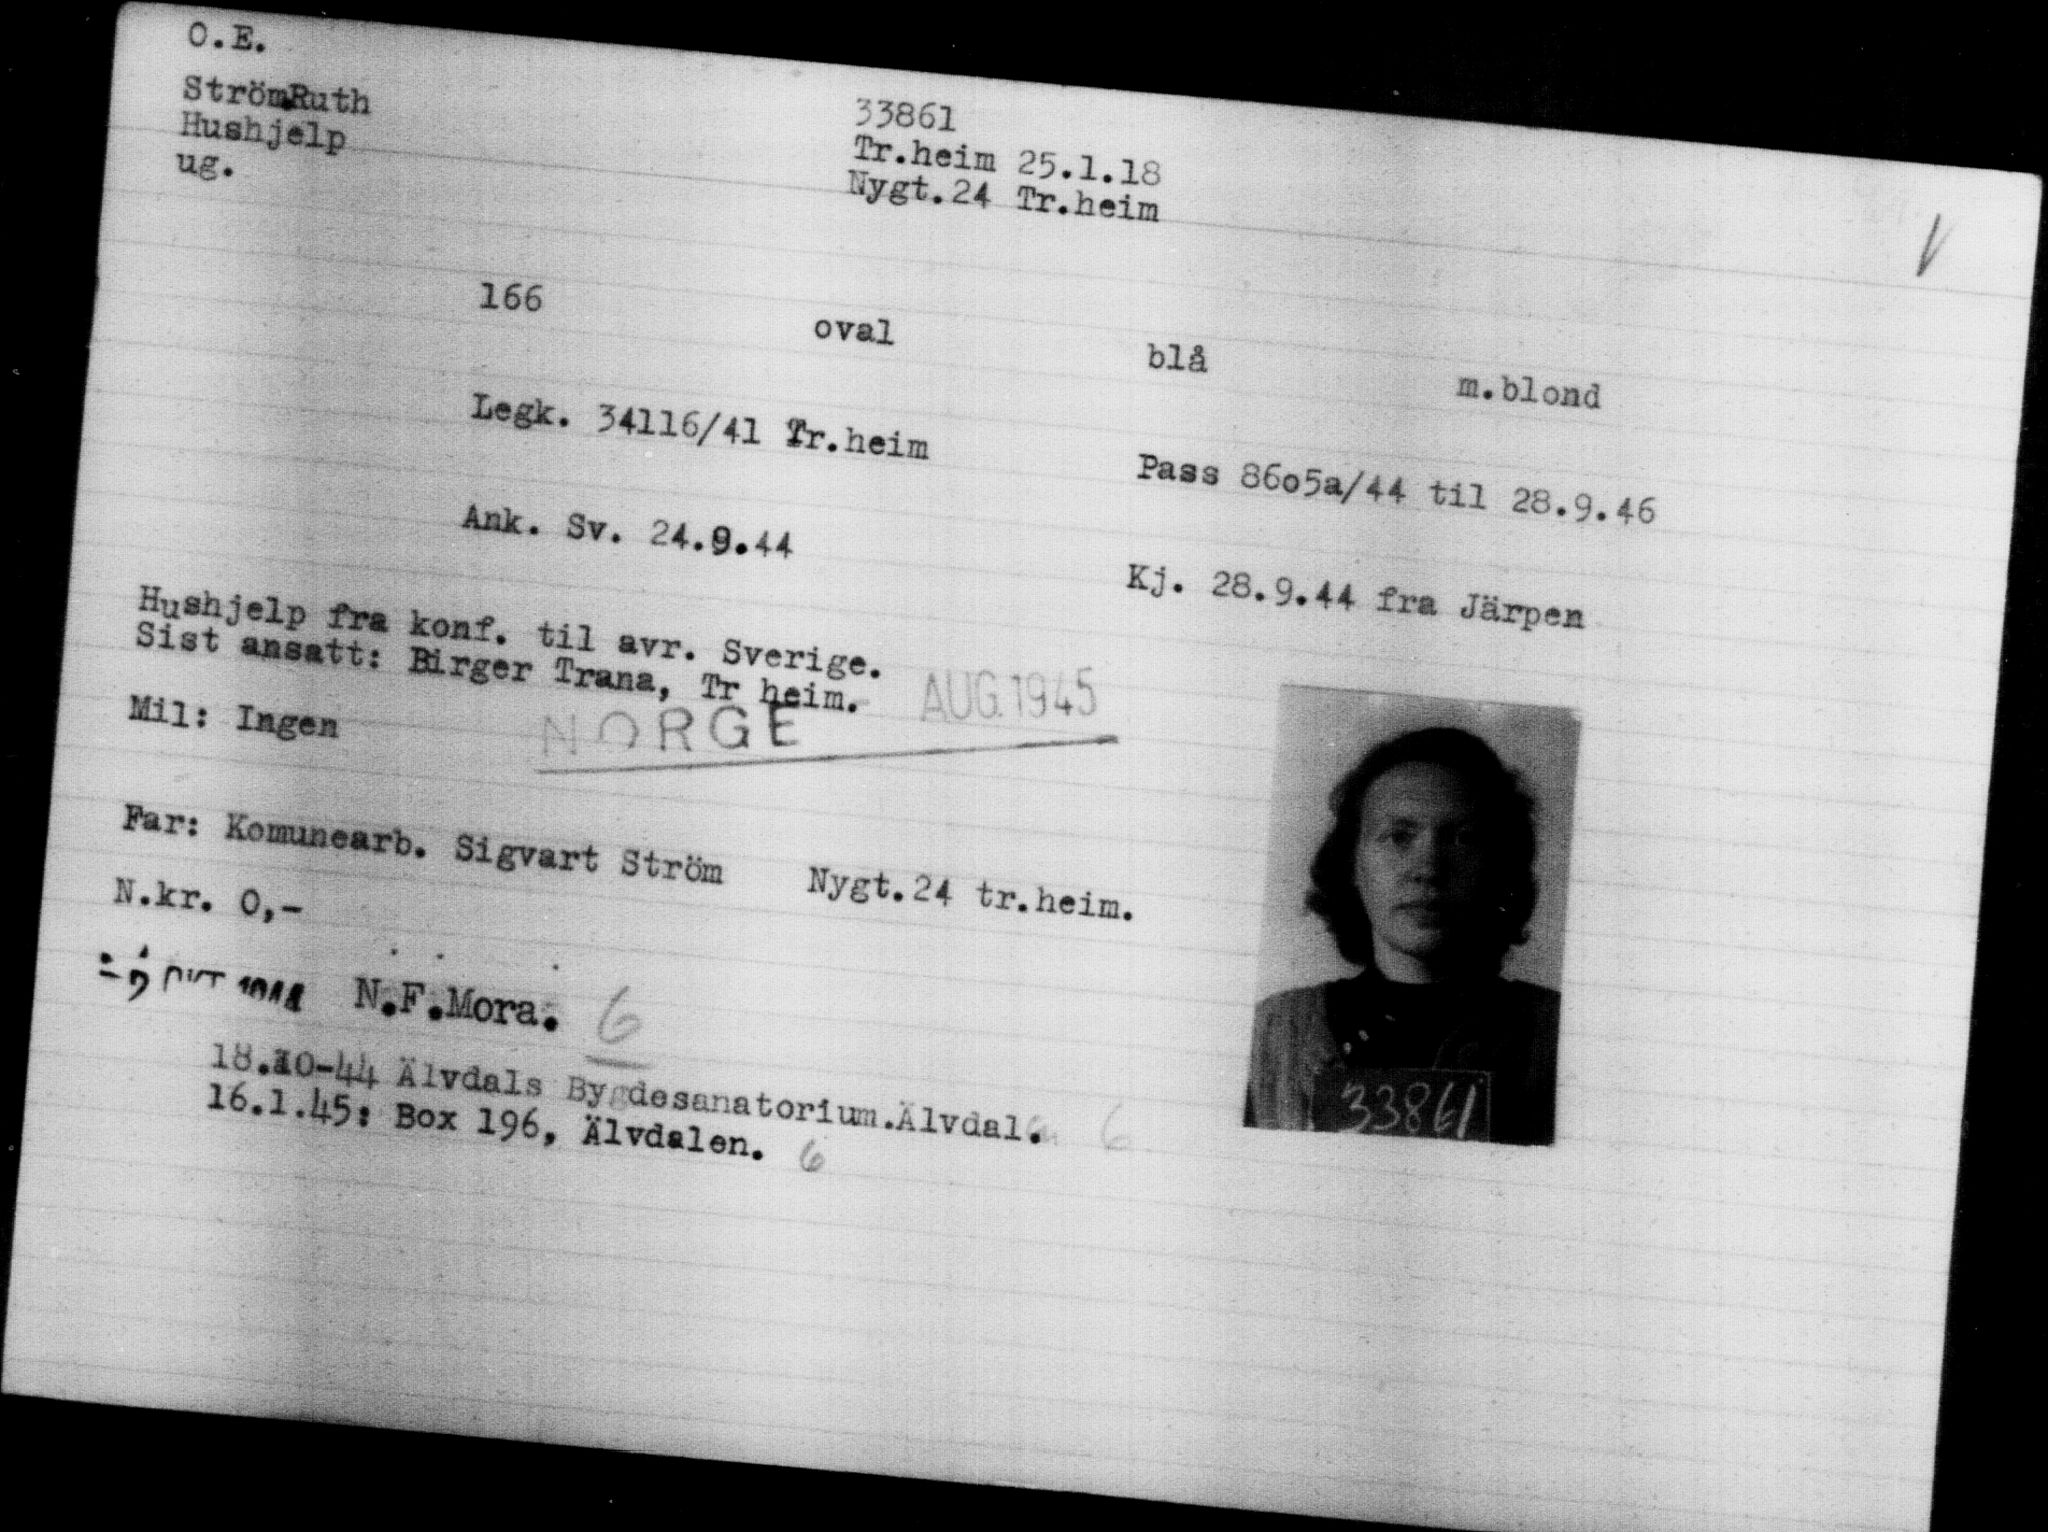 O.E.
Ström,Ruth
33861
Hushjelp
Tr.heim 25.1.18
ug.
Nygt.24 Tr.heim
166 oval blå m.blond
Legk. 34116/41 Tr.heim
Pass 86o5a/44 til 28.9.46
Ank. Sv. 24.9.44
Kj. 28.9.44 fra Järpen
Hushjelp fra konf. til avr. Sverige.
Sist ansatt: Birger Trana, Tr heim.
AUG.1945
NORGE
Mil: Ingen
Far: Komunearb. Sigvart Ström Nygt.24 tr.heim.
N.kr. 0,-
OKT 1944 N.F.Mora. 6
18.10-44 Älvdals Bygdesanatorium.Älvdal. 6
16.1.45: Box 196, Älvdalen. 6
33861